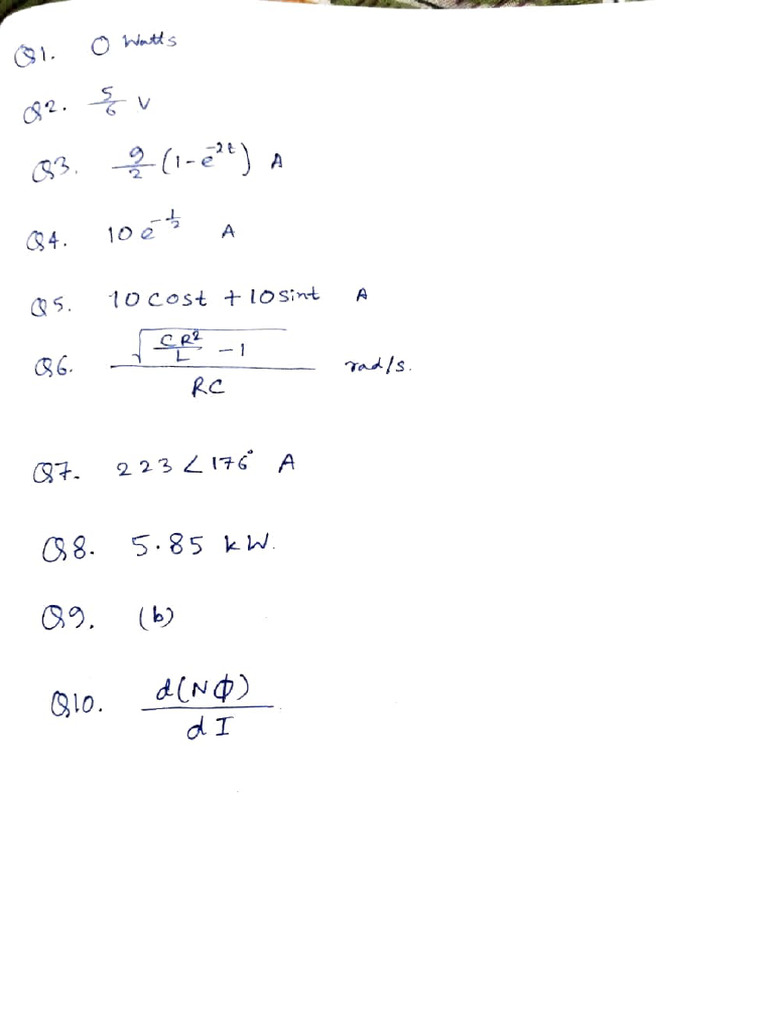 Q1. 0 Watts
Q2. 5/6 V
Q3. 9/2 (1-e^-2t) A
Q4. 10 e^-1/2 A
Q5. 10 cost + 10 sint A
Q6. √(CR²/L - 1) / RC rad/s.
Q7. 223∠176° A
Q8. 5.85 kW.
Q9. (b)
Q10. d(NΦ)/dI